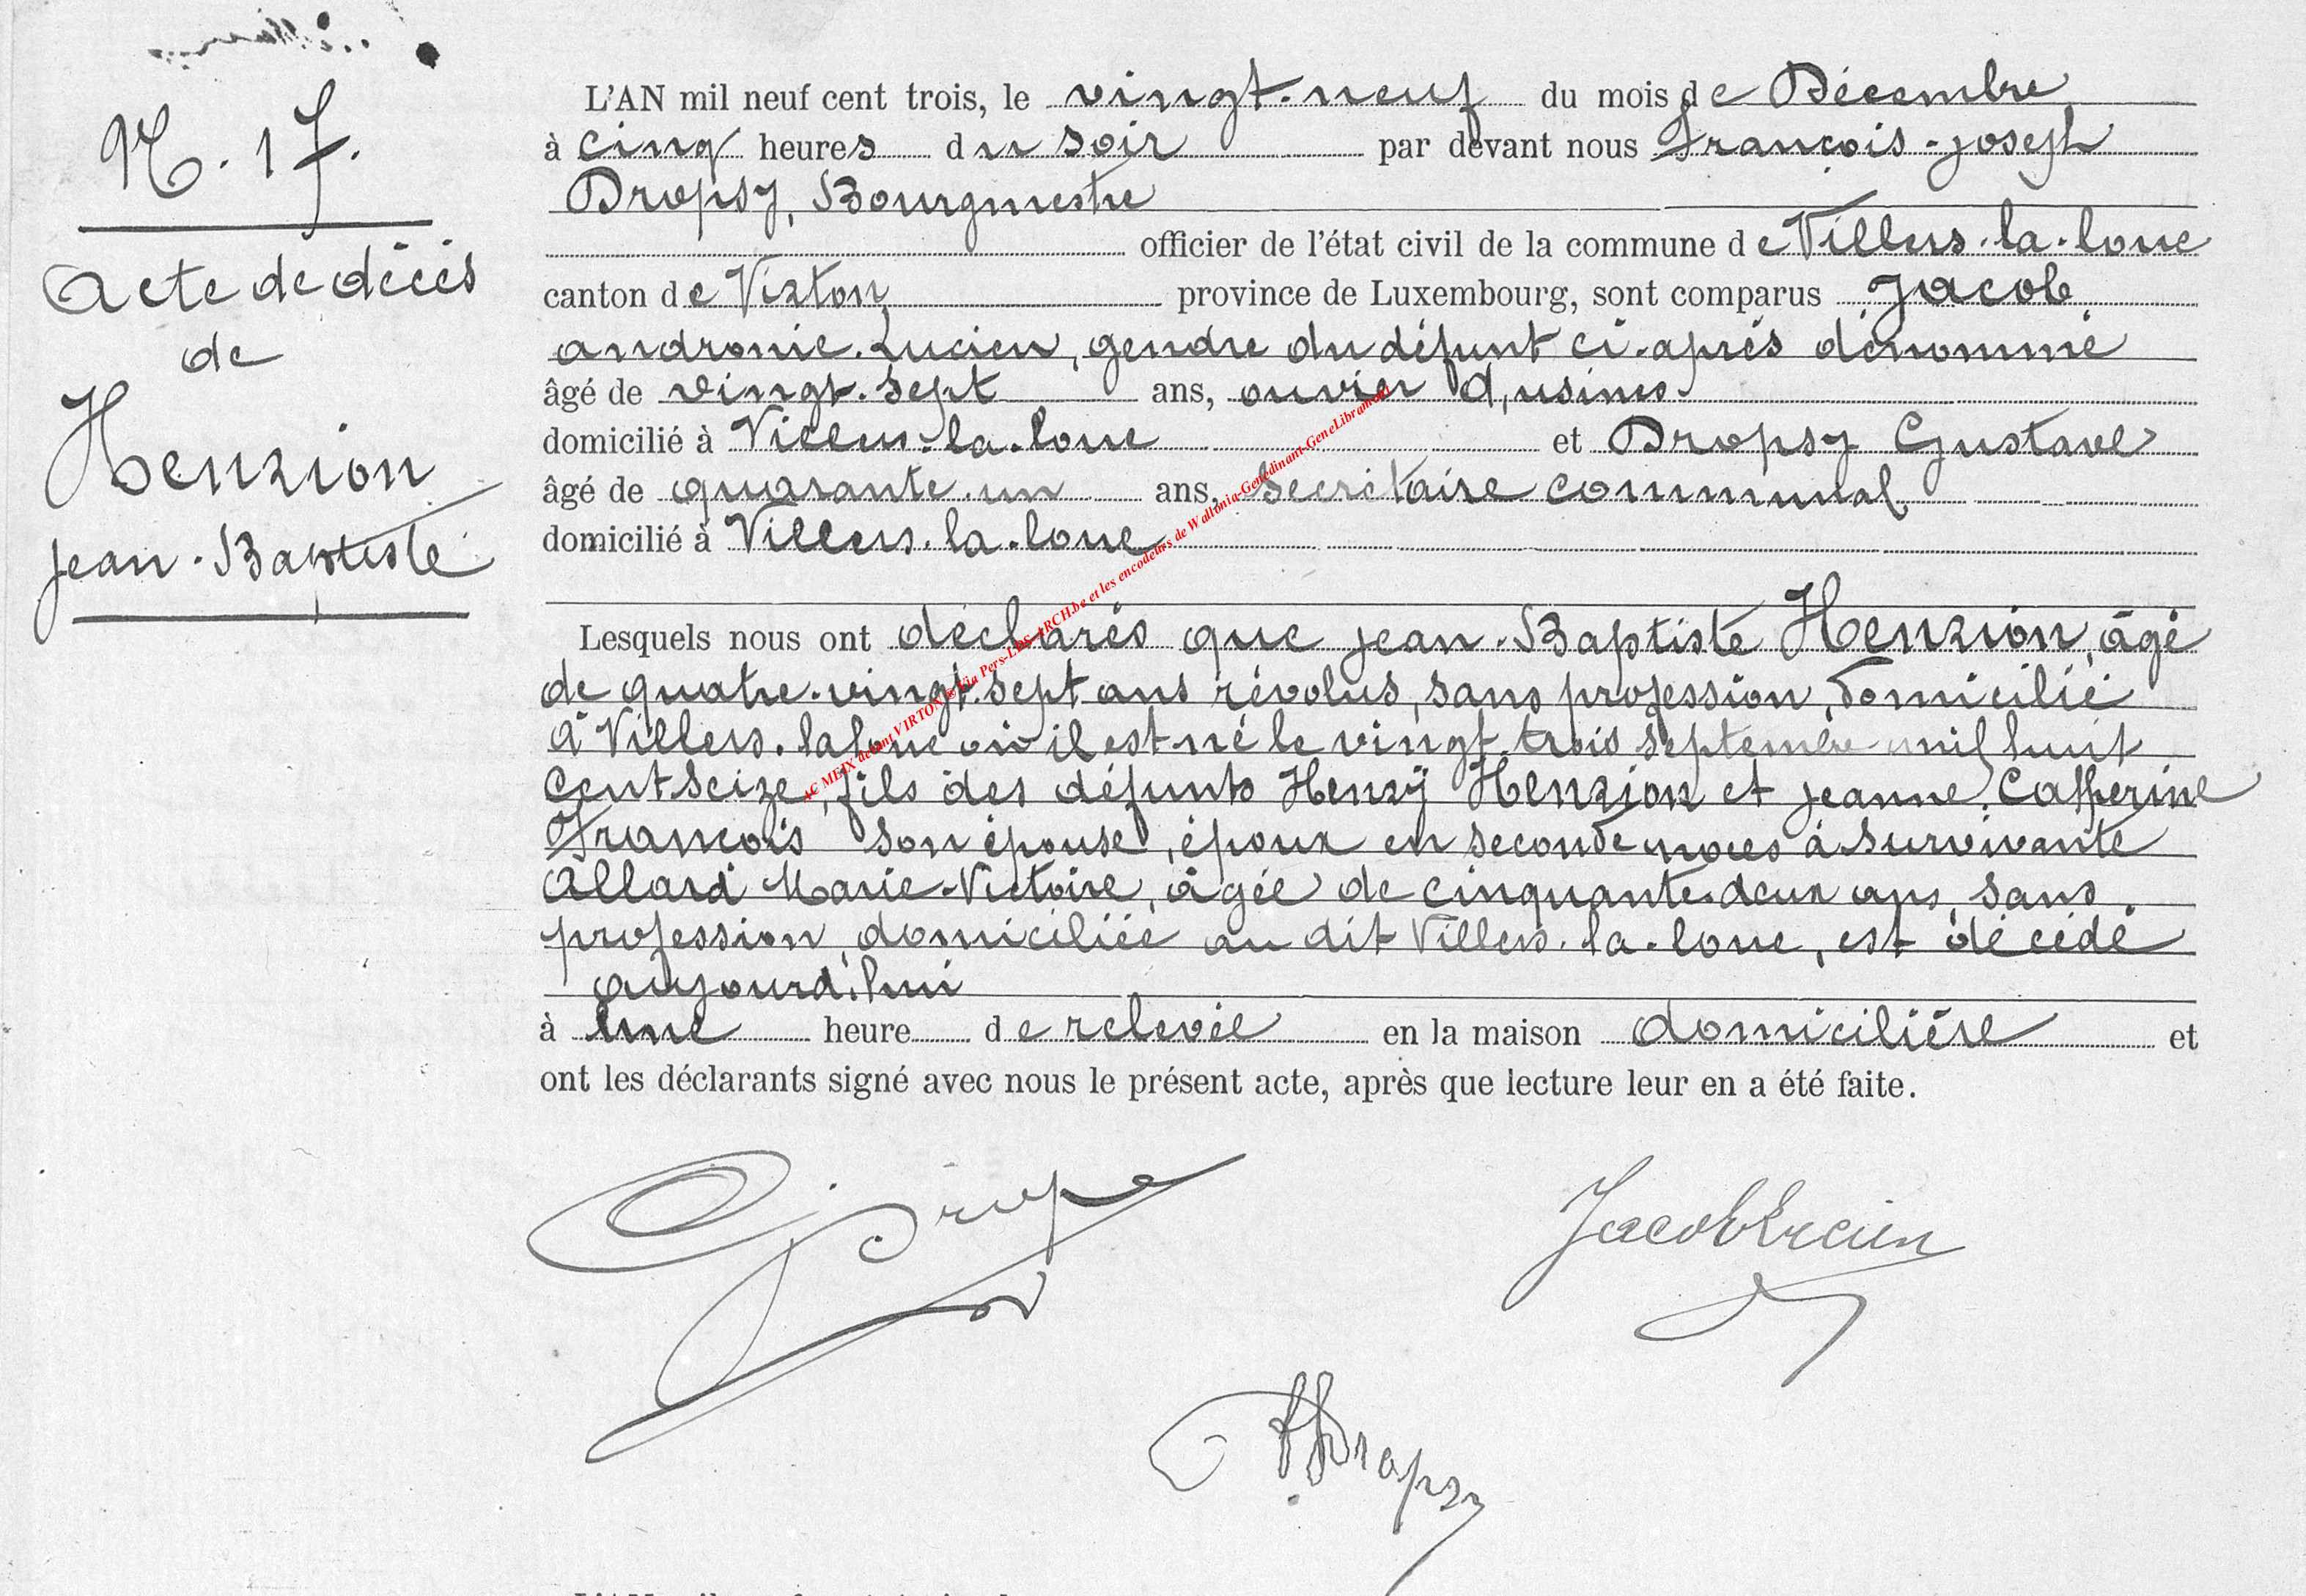 N. 17.
Acte de décès
de
Henrion
jean-Baptiste
L'AN mil neuf cent trois, le vingt-neuf du mois de Décembre
à cinq heures du soir par devant nous François-joseph
Dropsy, Bourgmestre
officier de l'état civil de la commune de Villers-la-loue
canton de Virton province de Luxembourg, sont comparus jacob
andronic-Lucien, gendre du défunt ci-après dénommé
âgé de vingt-sept ans, ouvrier d'usines
domicilié à Villers-la-loue et Dropsy Gustave
âgé de quarante-un ans, secrétaire communal
domicilié à Villers-la-loue
Lesquels nous ont déclarés que jean-Baptiste Henrion, âgé
de quatre-vingt-sept ans révolus, sans profession, domicilié
à Villers-la loue où il est né le vingt-trois septembre mil huit
cent seize, fils des défunts Henry Henrion et jeanne-Catherine
François son épouse, époux en seconde noces à survivante
Allard Marie-Victoire, âgée de cinquante-deux ans, sans
profession, domiciliée au dit Villers-la-loue, est décédé
aujourd'hui
à une heure de relevée en la maison domicilière et
ont les déclarants signé avec nous le présent acte, après que lecture leur en a été faite.
Jacob Lucien
Dropsy